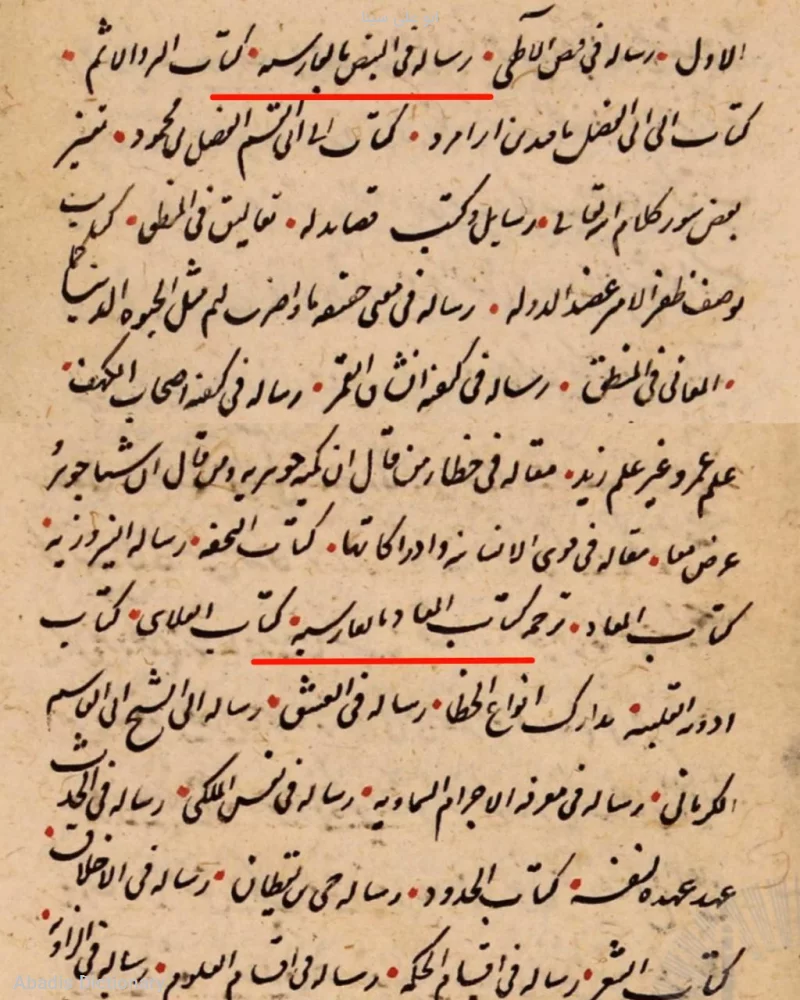 الاول • رساله فی فص الآطی • رساله فی النبض بالفارسیه • کتاب البر والاثم •
کتاب الی ابی الفضل • کتاب الی ابی القسم الفضل بن محمود • تفسیر
بعض سور کلام الله تعالی • رسایل و کتب • قصاید له • تعالیق فی المنطق • کتاب
بوصف ظفر الامیر عضد الدوله • رساله فی معنی مثل الحیوه الدنیا کما
• المعانی فی المنطق • رساله فی کیفیة انشقاق القمر • رساله فی کیفیة اصحاب الکهف •
علم عمرو غیر علم زید • مقاله فی خطاء من قال ان کمیه جوهریه ومن قال ان شیئا جوهر
عرض معا • مقاله فی قوی الانسانیه وادراکاتها • کتاب التحفه • رساله النیروزیه •
کتاب المعاد • ترجمه کتاب المعاد بالفارسیه • کتاب العلای • کتاب
ادویه القلبیه • تدارک انواع الخطا • رساله فی العشق • رساله الی الشیخ ابی القاسم
الکرمانی • رساله فی معرفه الاجرام السماویه • رساله فی نفس الفلکی • رساله فی الحدث
عهد عهده لنفسه • کتاب الحدود • رساله حی بن یقظان • رساله فی الاخلاق •
کتاب الشعر • رساله فی اقسام الحکمه • رساله فی اقسام العلوم • رساله فی الزاویه •